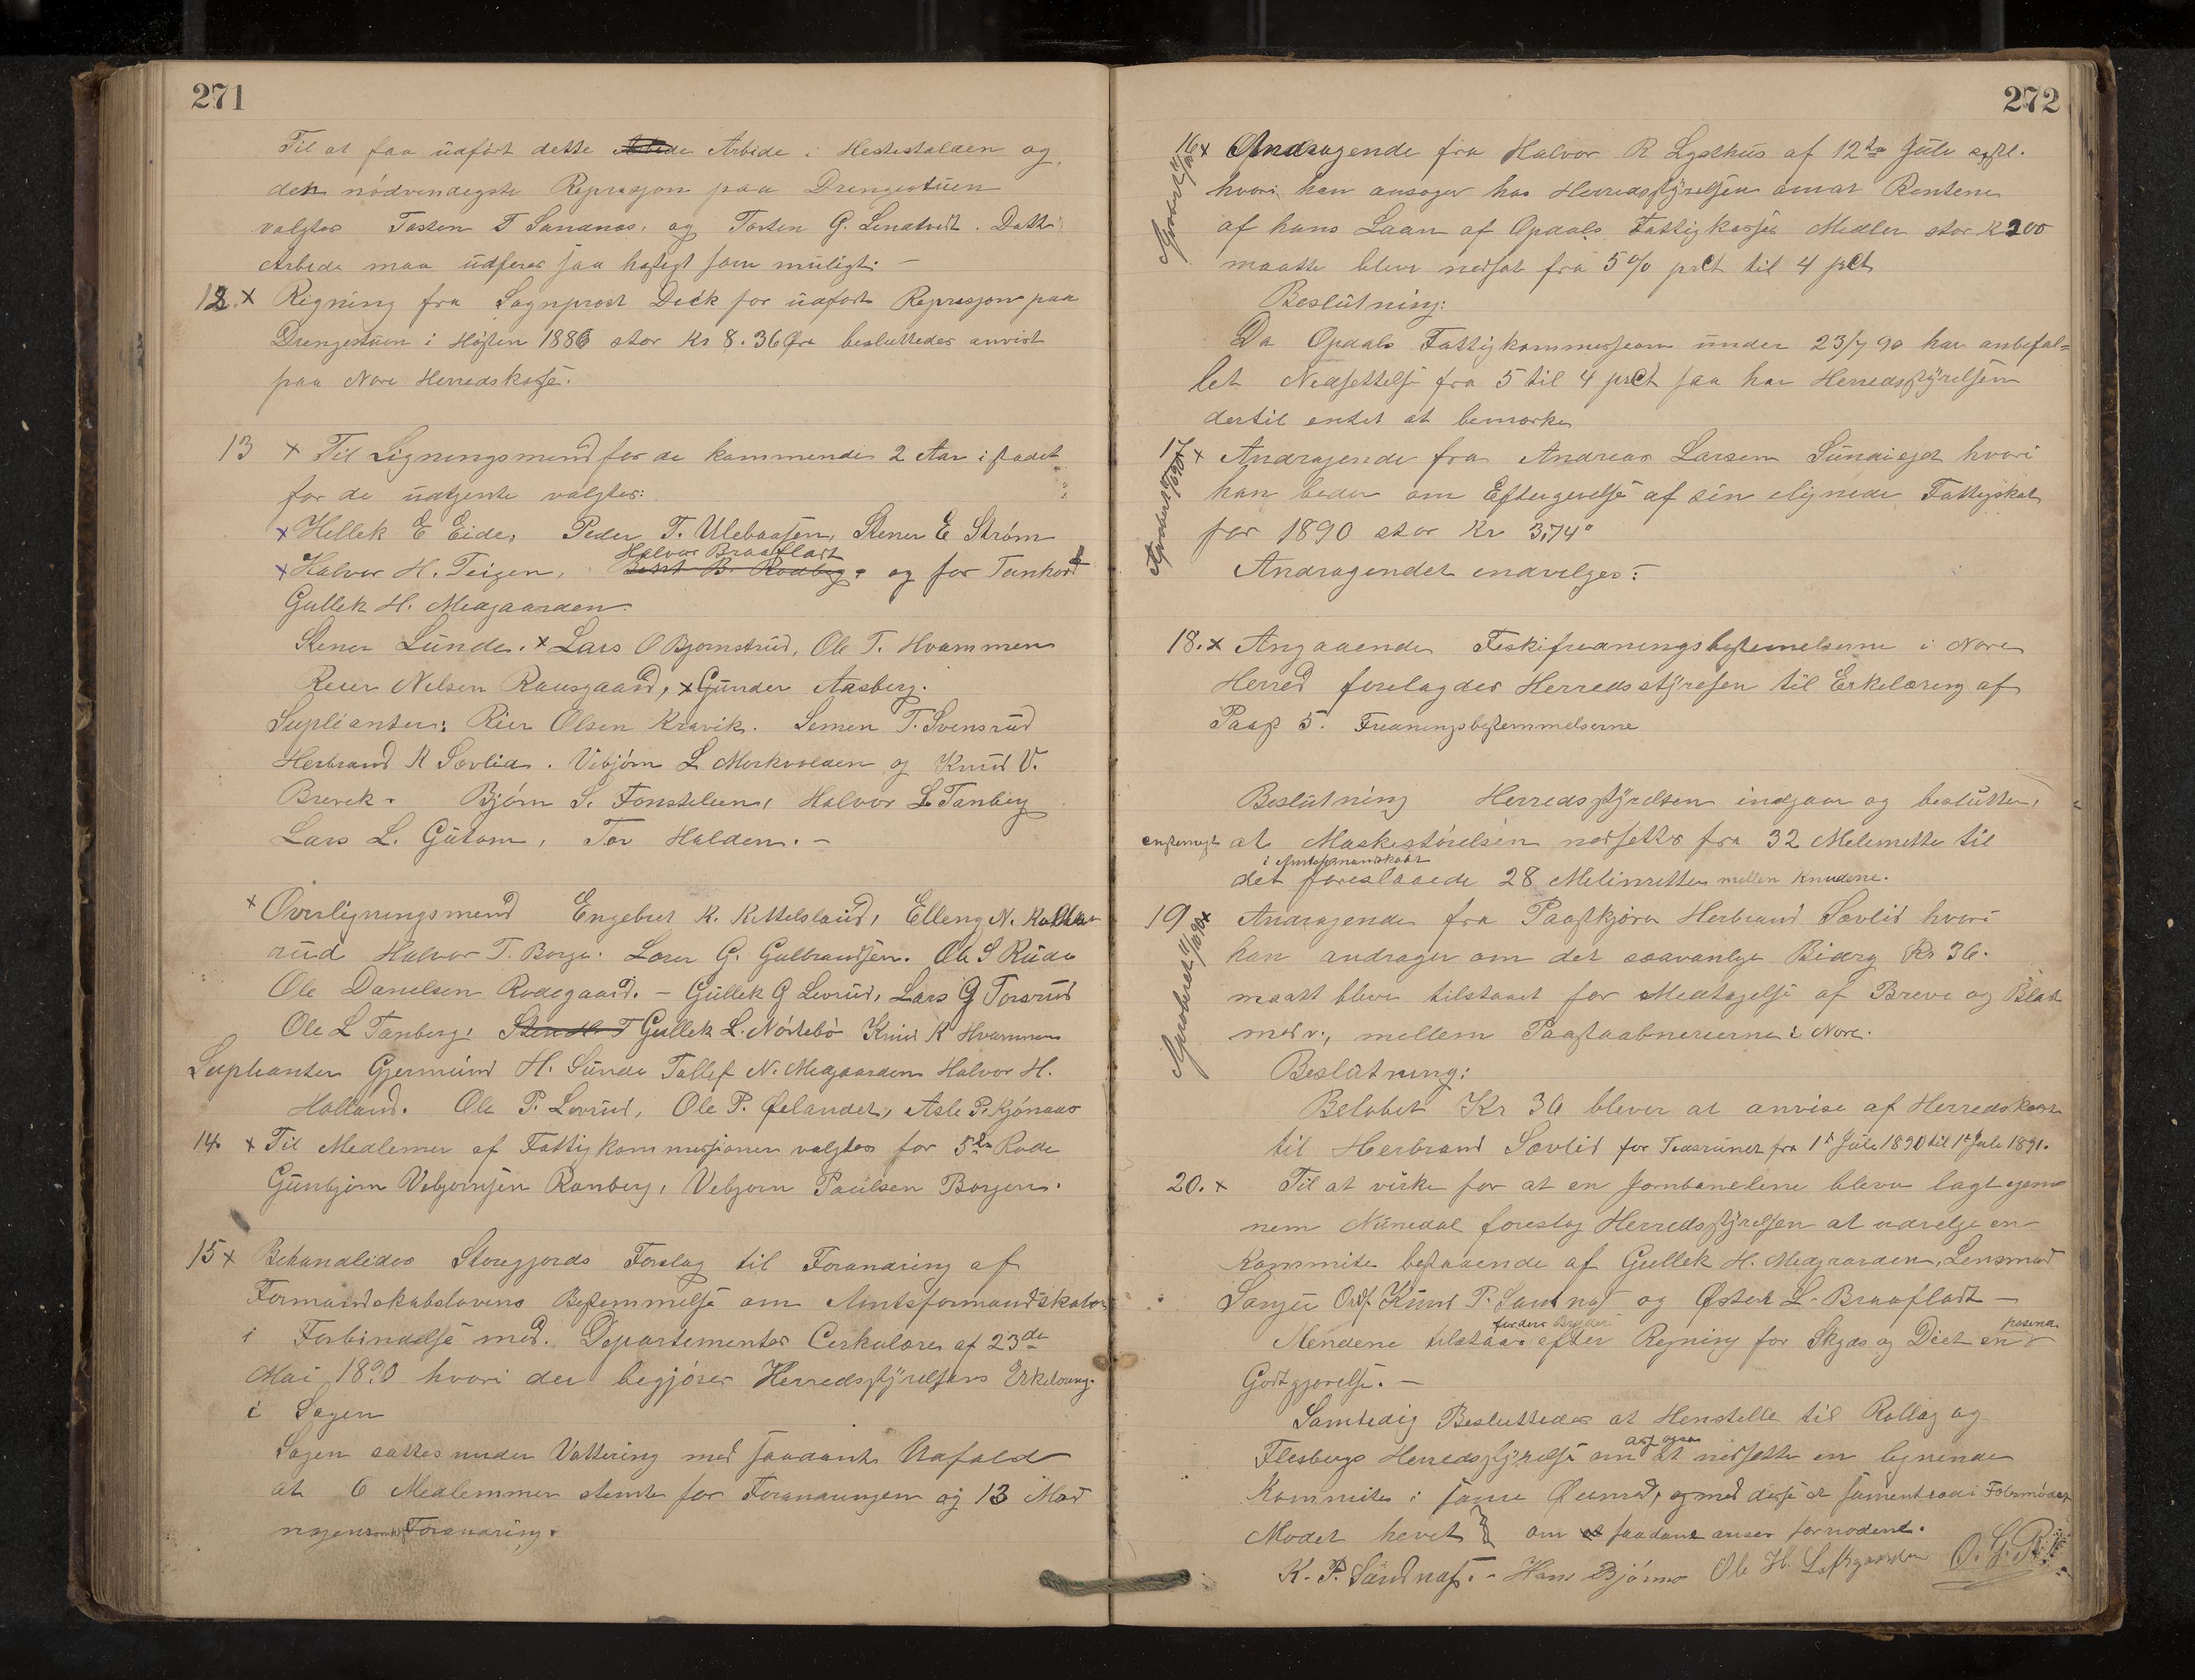 271
Til at faa udført dette Arbide i Hestestalden og
den nødvendigste Reprasjon paa Drengestuen
valgtes Tosten T Sandnæs, og Torsten G. Lenatvedt. Dette
Arbide maa udføres saa hastigt som muligt. —
12. x Rigning fra Sognprest Dick for udført Reprasjon paa
Drengestuen i Høsten 1886 stor Kr 8.36 Øre besluttedes anvist
paa Nore Herredskasse.
13 x Til Ligningsmend for de kommende 2 Aar istadet
for de udtjente valgtes:
x Hellek E Eide, Peder T. Ulebaasen, Stener E Strøm
Halvor Braafladt
x Halvor H. Teigen, Berit B. Rodberg, og for Tunhovd
Gullek H. Medgaarden
Stener Lunde. x Lars O Bjornstrud, Ole T. Hvammen
Reier Nelsen Ramsgaard, x Gunder Aasberg.
Suplianter: Reier Olsen Kravik. Semen T. Svensrud
Herbrand K Sevlid. Vibjørn L Morkvolden og Knud V.
Brevek. Bjørn S. Fønstelien, Halvor L Tanberg
Lars L. Gutom, Tor Halden. —
x Overligningsmend Engebret K. Kittelslaud, Elleng N. Kalle
rud Halvor T. Borge. Loser G. Gulbrandsen. Ole S Rude
Ole Danelsen Rodegaard. — Gullek G Levrud, Lars G Torsrud
Ole L Tanberg, Gullek L. Nørtebø Knud K Hvammen
Suplianter Gjermund H. Sunde Tollef N. Medgaarden Halvor H.
Holland. Ole P. Levrud, Ole P. Øelandet, Asle P. Kjønaas
14. x Til Medlemer af Fattigkommisjionen valgtes for 5te Rode
Gunbjørn Vebjornsen Ranberg, Vebjorn Paulsen Borgen.
15 x Behandledes Storegjords Forslag til Forandring af
Formandskabslovens Bestemmelse om Amtsformandskabe
i Forbindelse med. Departementes Cirkulære af 23de
Mai 1890 hvori der begjøres Herredsstyrelsens Erkelæring
i Sagen
Sagen sattes under Vottering med saadant Udfald
at 6 Medlemmer stemte for Forandringen og 13 Mod
nogensomhelst Forandring.
272
16 x Andragende fra Halvor R Lysthus af 12te Jule
hvori han ansøger hos Herredsstyrelsen om at Rentene
af hans Laan af Opdals Fattigkasses Medler stor K 200
maatte bleve nedsat fra 5 % prct til 4 prct
Beslutning:
Da Opdals Fattigkommission under 23/7 90 har anbefal=
let Nedsettelse fra 5 til 4 prct saa har Herredsstyrelsen
dertil entet at bemærke
17 x Andragende fra Andreas Larsen Sundeiejet hvori
han beder om Eftergivelse af sin elignede Fattigskat
for 1890 stor Kr 3,74
Andragendet indvelges:
18. x Angaaende Feskifredningsbestemelserne i Nore
Herred forelagdes Herredsstyresen til Erkelæring af
Post 5. Fredningsbestemmelserne
Beslutning Herredsstyrelsen indgaar og beslutter,
enstemigt at Maskestørelsen nedsettes fra 32 Melemetter til
i Amtsformandskabet
det foreslaaede 28 Melimetter mellen Knudene.
19 x Andragende fra Postkjører Herbrand Sevlid hvori
han andrager om det sedvanlige Bidrag Kr 36.
maatt bleve tilstaaet for Medtagelse af Breve og Blad
med v., mellem Postaabnerierne i Nore.
Beslutning:
Beløbet Kr 36 blever at anvise af Herredskasse
til Herbrand Sevlid for Tedsrumet fra 1te Jule 1890 til 1te Jule 1891.
20. x Til at virke for at en Jernbanelene bleve lagt gjen=
nem Numedal foreslog Herredsstyrelsen at udvelge en
Kommite bestaaende af Gullek H. Medgaarden, Lensmad
Sanger Ordf. Knud P. Sandnes og Østen L. Braafladt —
Mendene tilstaaes efter Regning for Skyds og Diet en
Godtgjørelse. —
Samtedig Besluttedes at Henstelle til Rollag og
Flesbergs Herredsstyrelse om at nedsette en lignende
Kommite i samme Øiemed, og med disse at sammentræde i Fellesmøder
Mødet hevet om saadant anses fornødent.
K. P. Sandnæs. - Hans Bjørnes Ole H. Loftsgaarden O. G. R.